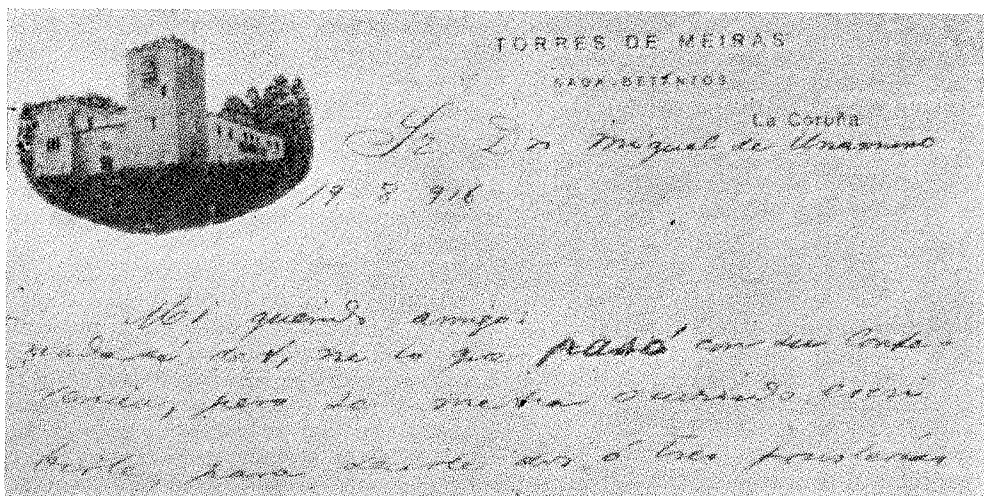 TORRES DE MEIRAS
SADA-BETANZOS
La Coruña
Sr Don Miguel de Unamuno
19 8 916
Mi querido amigo:
nada sé de V, ni lo que pasó con su Confe-
rencia, pero se me ha ocurrido
para dos ó tres